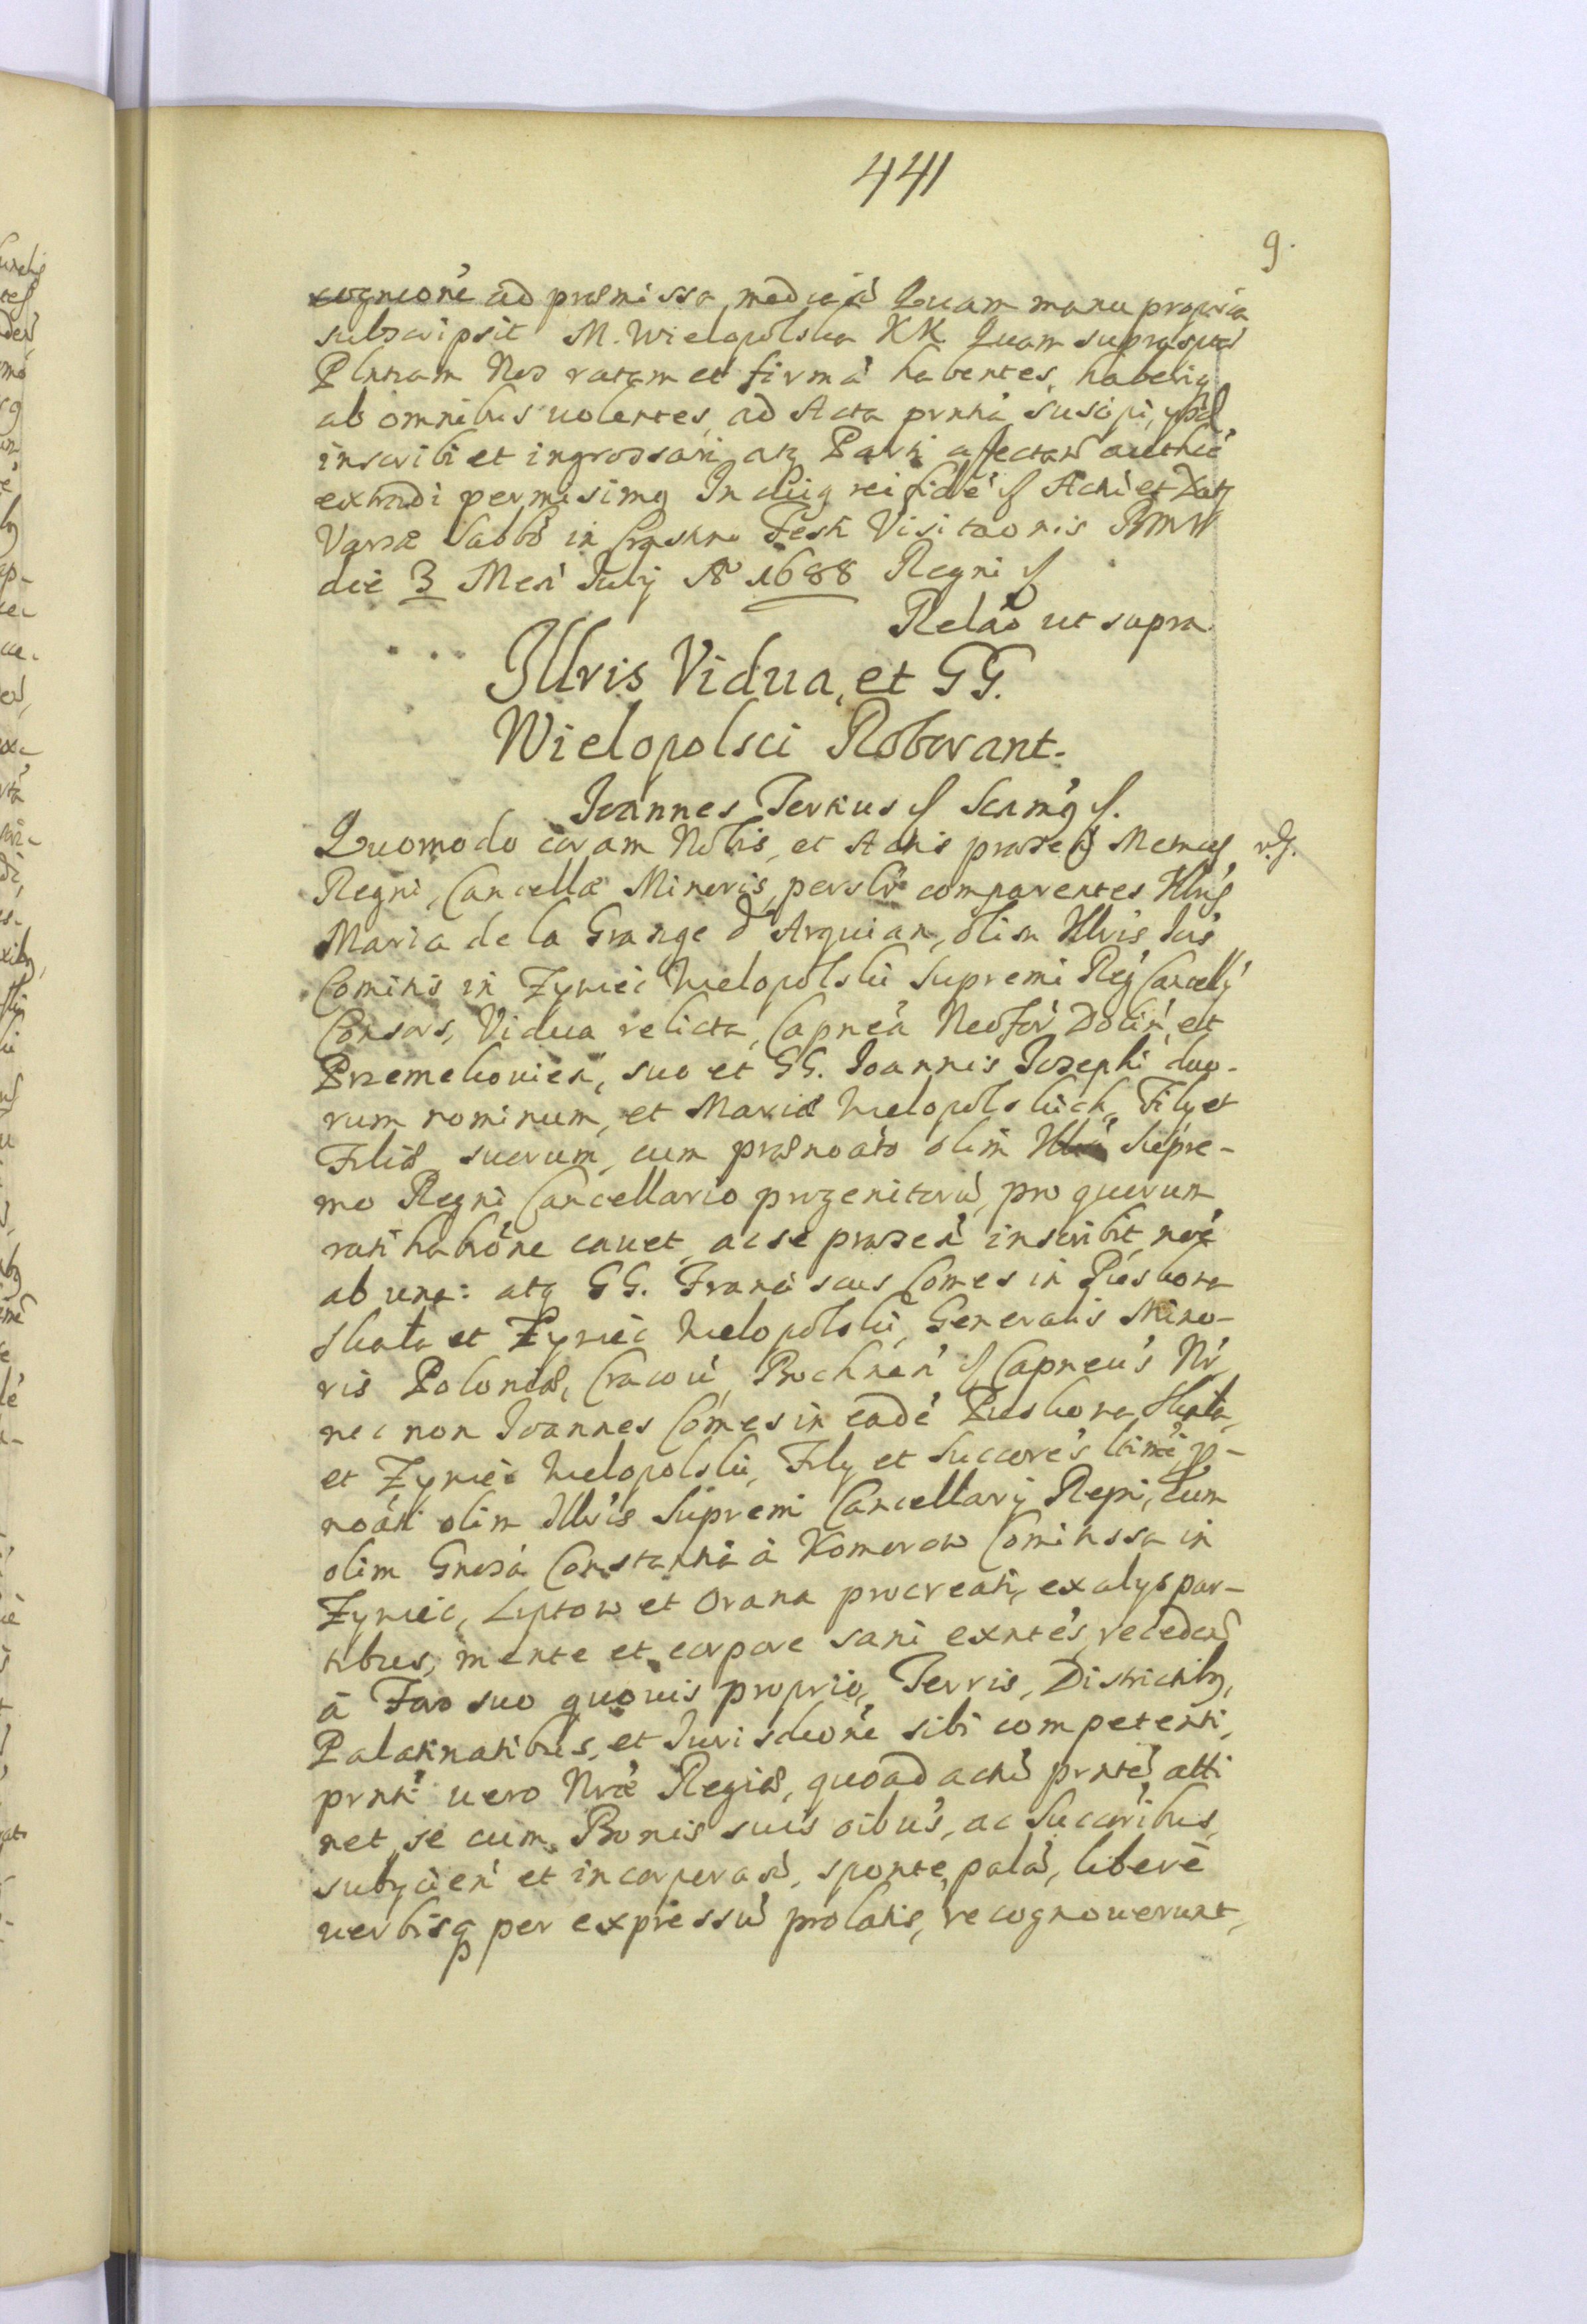 441
9.
cognicone ad præmissa mediaň Quam manu propria
subscripsit M. Wielopolska KK. Quam suprascriptā
Plntiam Nos ratam et firmā habentes, haberiq
ab omnibus uolentes, ad Acta prntia suscipi,
inscribi et ingrossari atq Parti affectań authcē
extradi permisimq In cuiq rei fidē // Actū et Datq
Varsæ Sabbo in Crastino Festi Visitaonis BMV
die 3 Men July Ao 1688 Regni //
Relāo ut supra
Illris Vidua, et GG.
Wielopolsci Roborant.
Joannes Tertius // Scrim'q //.
Quomodo coram Nobis, et Actis præsentib
Regni, Cancellæ Minoris, persolr comparentes Illris
Maria de la Grange d'Arquian, olim Illris Jois
Comitis in Zywiec Wielopolski Supremi Reg Cancelly
Consors, Vidua relicta, Capnea Neofor Dolin, et
Przemekovien, suo et GG. Joannis Josephi duo-
rum nominum, et Mariæ Wielopolskich, Filij et
Filiæ suorum, cum prænoato olim Supre-
mo Regni Cancellario progenitorū, pro quorum
ratihabōne cauet, ac se præsen inscribit noīe
ab una: atq GG. Franciscus Comes in Pieskowa
Skała et Zywiec Wielopolski, Generalis Mino-
ris Poloniæ, Cracoū, Bochnen // Capneus Nr
nec non Joannes Comes in eadē Pieskowa Skała,
et Zywiec Wielopolski, Fily et Succores ltimi p-
noāti olim Illris Supremi Cancellarij Regni, cum
olim Gnosa Constantia à Komorow Comitissa in
Zywiec, Liptow et Orana procreati, ex alys par-
tibus, mente et corpore sani exntes, recedeň
à Foro suo quouis proprio, Terris, Districtibq,
Palatinatibus, et Jurisdcone sibi competenti,
prnti uero Nræ Regiæ, quoad actū prntē atti
net se cum Bonis suis oibus, ac Succoribus,
subyicień et incorporań, sponte, palā, liberè
uerbisq per expressū prolatis, recognouerunt,